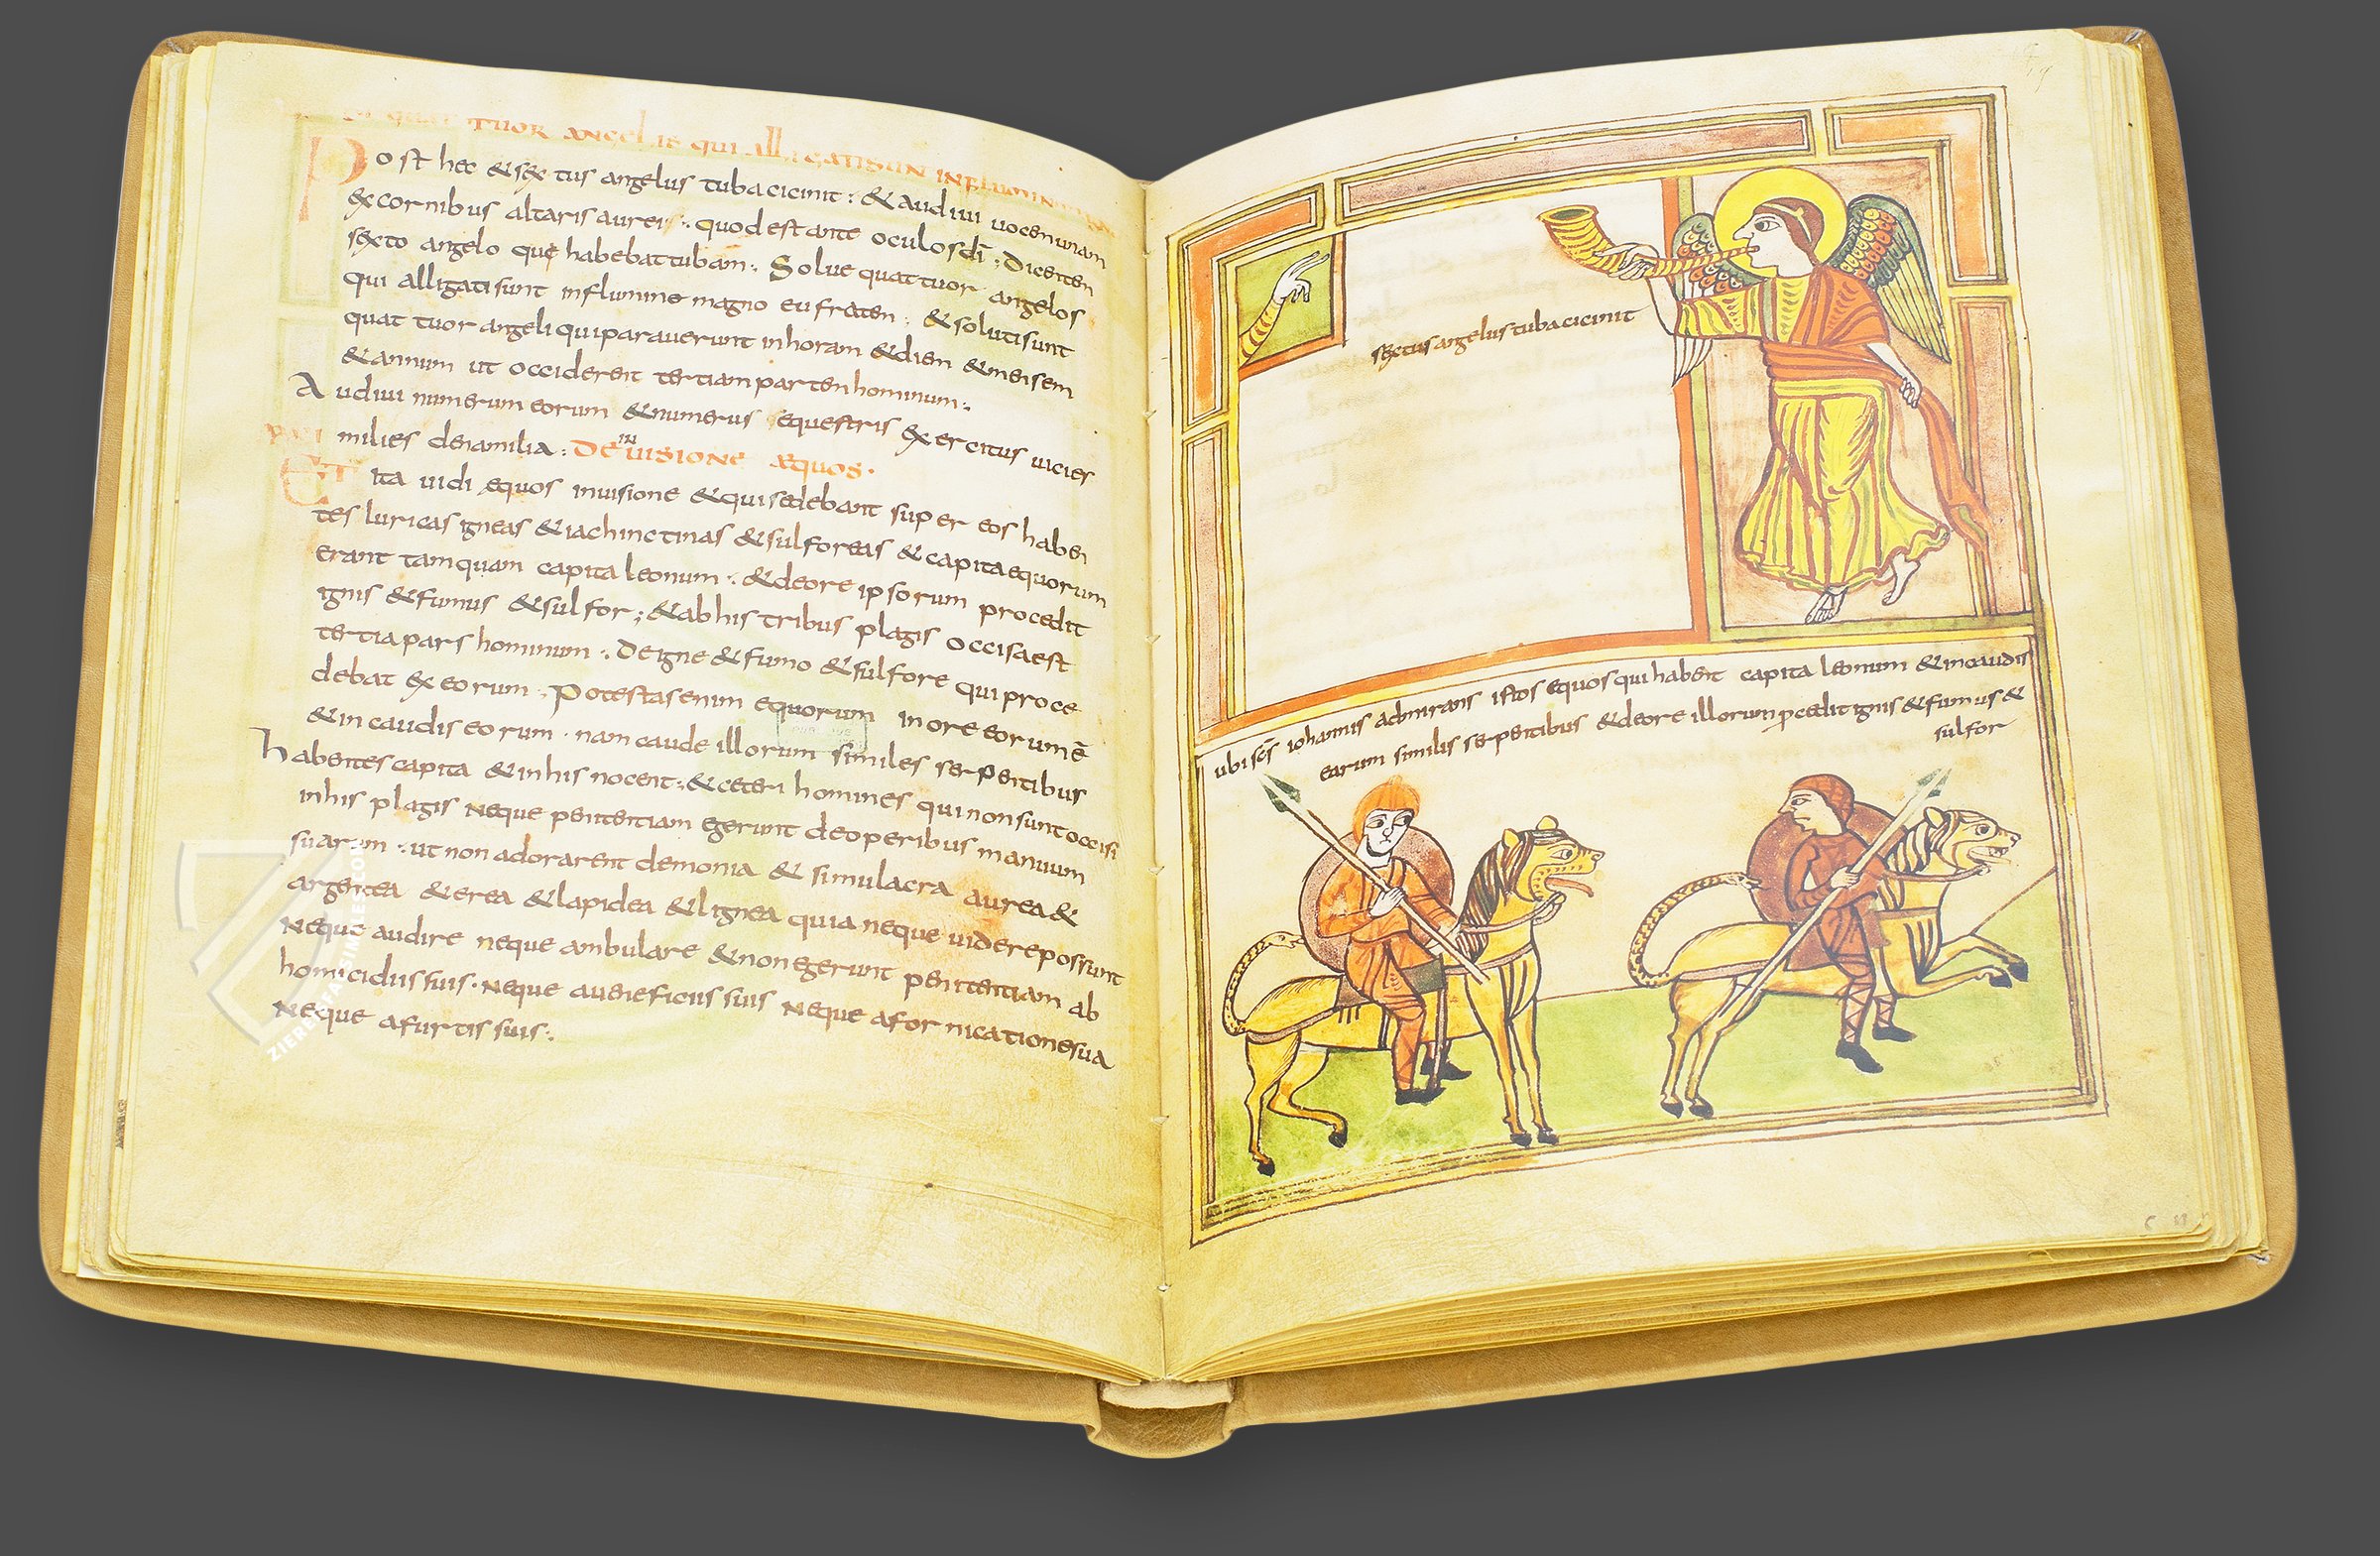 quattuor angelis qui alligati sunt in flumine
Post hec & sextus angelus tuba cicinit : & audiui uocem unam
ex cornibus altaris aurei : quod est ante oculos dī ; Dicentem
sexto angelo que habebat tubam : Solue quattuor angelos
qui alligati sunt in flumine magno eufraten : & soluti sunt
quattuor angeli qui parauerunt in horam & diem & mensem
& annum ut occiderent tertiam partem hominum :
Audiui numerum eorum & numerus equestris exercitus uicies
milies dena milia : De uisione equos .
Et ita uidi equos in uisione & qui sedebant super eos haben
tes luricas igneas & iachinctinas & sulforeas & capita equorum
erant tamquam capita leonum : & de ore ipsorum procedit
ignis & fumus & sulfor ; & ab his tribus plagis occisa est
tertia pars hominum : De igne & fumo & sulfore qui proce
debat ex eorum : Potestas enim equorum in ore eorum ē
& in caudis eorum . nam caude illorum similes serpentibus
habentes capita & in his nocent : & ceteri homines qui non sunt occisi
in his plagis neque penitentiam egerunt de operibus manuum
suarum : ut non adorarent demonia & simulacra aurea &
argentea & erea & lapidea & lignea quia neque uidere possunt
neque audire neque ambulare & non egerunt penitentiam ab
homicidiis suis . neque a ueneficiis suis neque a fornicatione sua
neque a furtis suis :
sextus angelus tuba cicinit
ubi scs iohannis admirans istos equos qui habent capita leonum & in caudis
earum similis serpentibus & de ore illorum procedit ignis & fumus &
sulfor